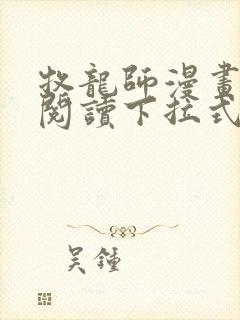 牧龍師漫畫
閱讀下拉式
吴鍾